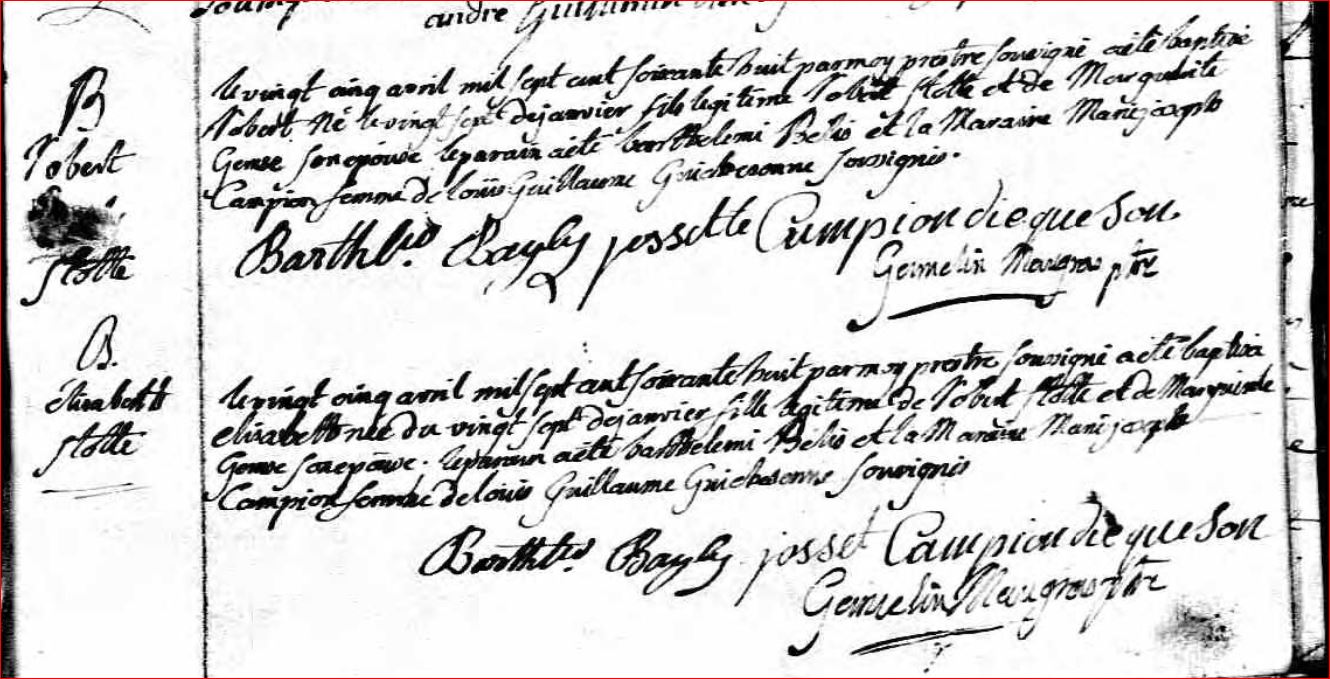 andre Guillimin
B
Robert
Stotte
le vingt cinq avril mil sept cent soixante huit par moy prestre soussigné a été baptisé
Robert Né le vingt sept de janvier fils legitime Robert Stotte et de Marguerite
Gemse son epouse le parain a été barthelemi Bélis et la Maraine Marie joseph
Campion femme de loüis Guillaume Guichesonne soussignés.
Barthlo. Bayly jossette Campion dieque Son
Gemelin Maugras ptre
B.
élizabeth
stotte
le vingt cinq avril mil sept cent soixante huit par moy prestre soussigné a été baptisé
elizabeth née du vingt sept de janvier fille legitime de Robert Stotte et de Marguerite
Gemse son epouse. le parain a été barthelemi Bélis et la Maraine Marie joseph
Campion femme de louis Guillaume Guichesonne soussignés
Barthlo. Bayly josset Campion dieque Son
Gemelin Maugras ptre